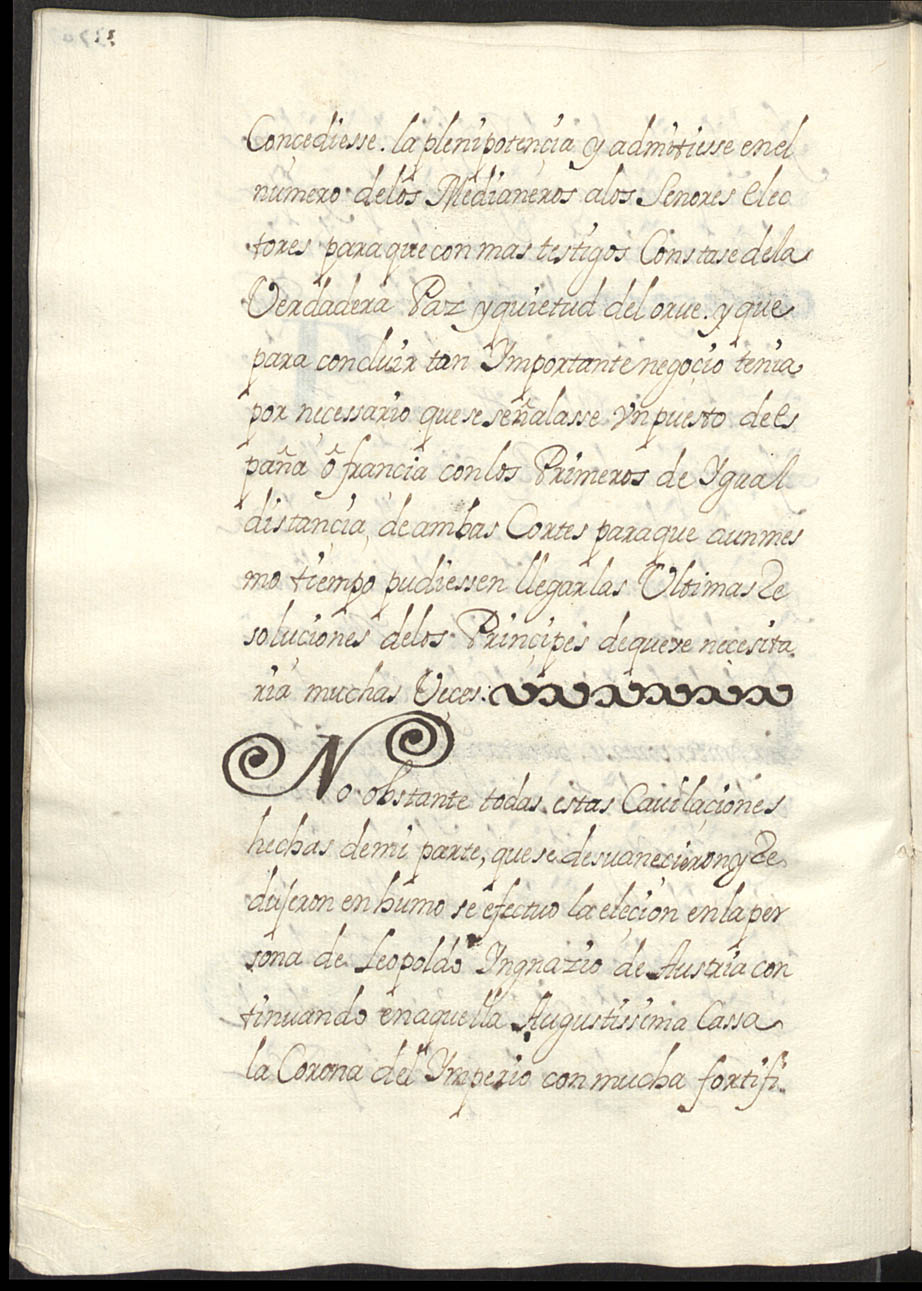 Concediesse. la plenipotencia y admitiesse en el
numero de los Medianeros a los Señores elec
tores para que con mas testigos Constase de la
Verdadera Paz y quietud del orue. y que
para concluir tan Ymportante negocio tenia
por necessario que se señalasse vn puesto de es
paña ô francia con los Primeros de Ygual
distancia, de ambas Cortes para que a un mes
mo tiempo pudiessen llegar las Ultimas Re
soluciones de los Principes de que se necesita
ria muchas Veçes:
No obstante todas estas Cauilaçiones
hechas de mi parte, que se desuanecieron y Re
dujeron en humo se efectuo la eleçion en la per
sona de Leopoldo Yngnazio de Austria con
tinuando en aquella Augustissima Cassa
la Corona del Ymperio con mucha fortifi